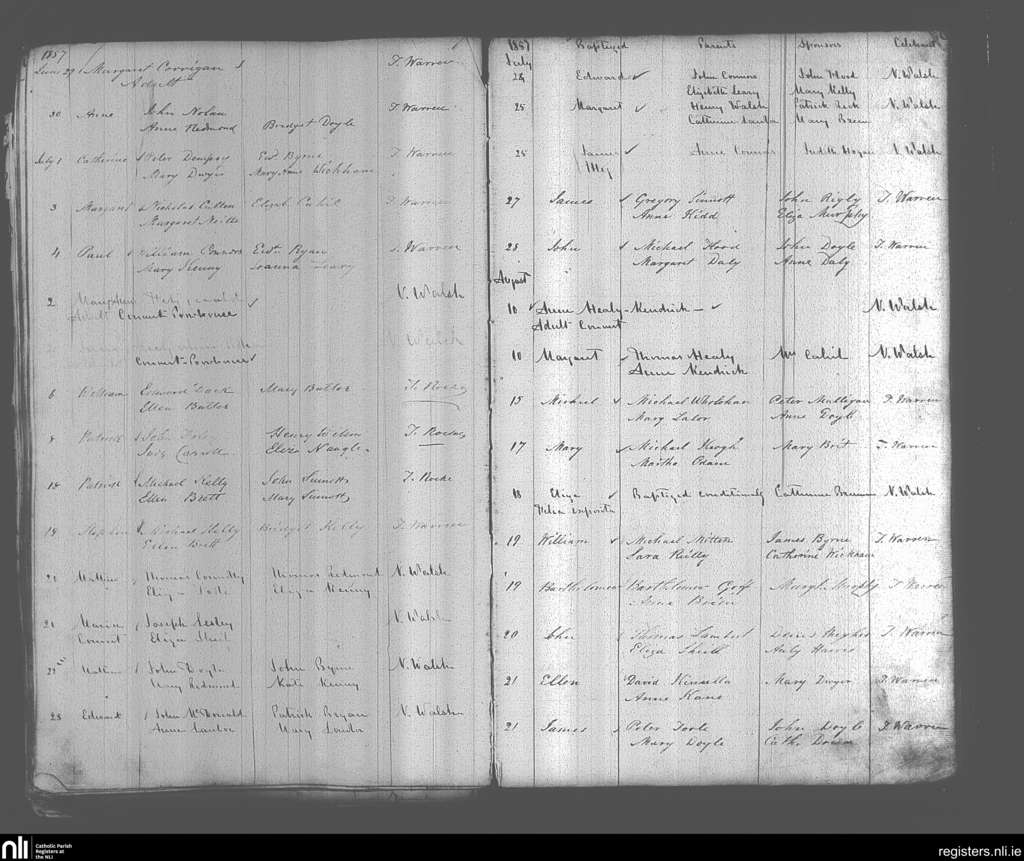 1857
June 29 Margaret Corrigan T. Warren
Adult
30 Anne John Nolan T. Warren
Anne Redmond Bridget Doyle
July 1 Catherine Peter Dempsey Edwd Byrne T. Warren
Mary Dwyer Mary Anne Wickham
3 Margaret Nicholas Cullen Elizab. Cahil T. Warren
Margaret
4 Paul William Connors Edwd Ryan T. Warren
Mary Kenny Joanna Leary
2 N. Walsh
Adult Convert Poorhouse
N. Walsh
Convert Poorhouse
6 William Edward Mary Butler T. Roche
Ellen Butler
8 Patrick John Foley Henry T. Roche
Carroll Eliza Naugle
18 Patrick Michael Kelly John Sinnott T. Roche
Ellen Brett Mary Sinnott
18 Stephen Michael Kelly Bridget Kelly T. Warren
Ellen Brett
20 Thomas Connolly Thomas Redmond N. Walsh
Eliza Eliza Kenny
21 Maria Joseph N. Walsh
Convert Eliza
22 John Doyle John Byrne N. Walsh
Mary Redmond Kate Kenny
23 Edward John McDonald Patrick Bryan N. Walsh
Anne Lawlor Mary Lawlor
1857 Baptized Parents Sponsors Celebrant
July
24 Edward John Connors John Wood N. Walsh
Elizabeth Leary Mary Kelly
25 Margaret Henry Walsh Patrick N. Walsh
Catherine Lawlor Mary Breen
25 James Anne Connors Judith Hogan N. Walsh
Illeg
27 James Gregory Sinnott John Rigly T. Warren
Anne Kidd Eliza Murphy
28 John Michael Hood John Doyle T. Warren
Margaret Daly Anne Daly
August
10 Anne Healy - Kendrick - N. Walsh
Adult Convert
10 Margaret Thomas Healy Mrs Cahil N. Walsh
Anne Kendrick
15 Michael Michael Whelehan Peter Mulligan T. Warren
Mary Lalor Anne Doyle
17 Mary Michael Keogh Mary Bret T. Warren
Martha Odam
18 Eliza Baptized conditionally Catherine N. Walsh
19 William Michael Mitten James Byrne T. Warren
Sara Reilly Catherine Wickham
19 Bartholomew Bartholomew Goff Margt Murphy T. Warren
Anne Brien
20 John Thomas Lambert Denis Hughes T. Warren
Eliza Harris
21 Ellen David Kinsella Mary Dwyer T. Warren
Anne Kane
21 James Peter Toole John Doyle T. Warren
Mary Doyle Cath.
nli Catholic Parish
Registers at
the NLI
registers.nli.ie